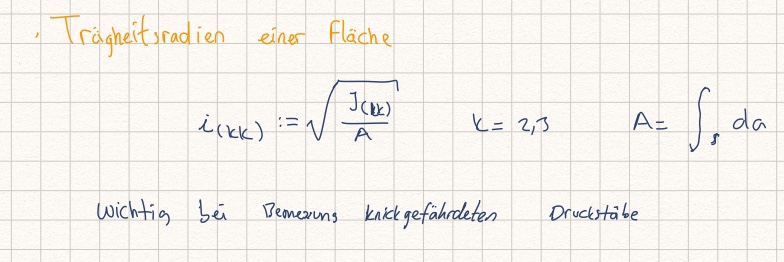 Trägheitsradien einer Fläche
i(kk) := √(J(kk)/A) k = 2,3 A = ∫s da
Wichtig bei Bemezung knickgefährdeten Druckstäbe